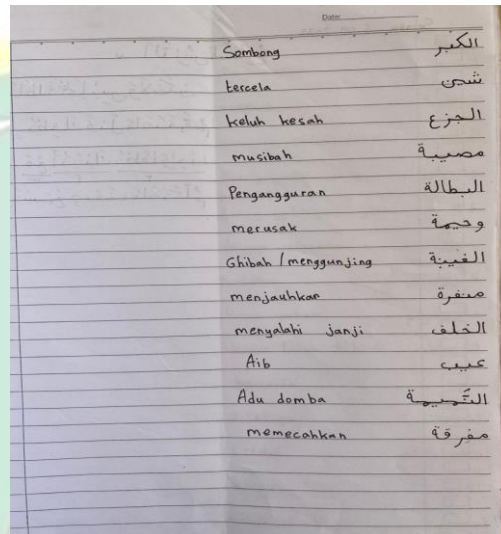 Date:
Sombong الكبر
tercela شين
keluh kesah الجزع
musibah مصيبة
Pengangguran البطالة
merusak وخيمة
Ghibah / menggunjing الغيبة
menjauhkan منفرة
menyalahi janji الخلف
Aib عيب
Adu domba النَّميمة
memecahkan مفرقة